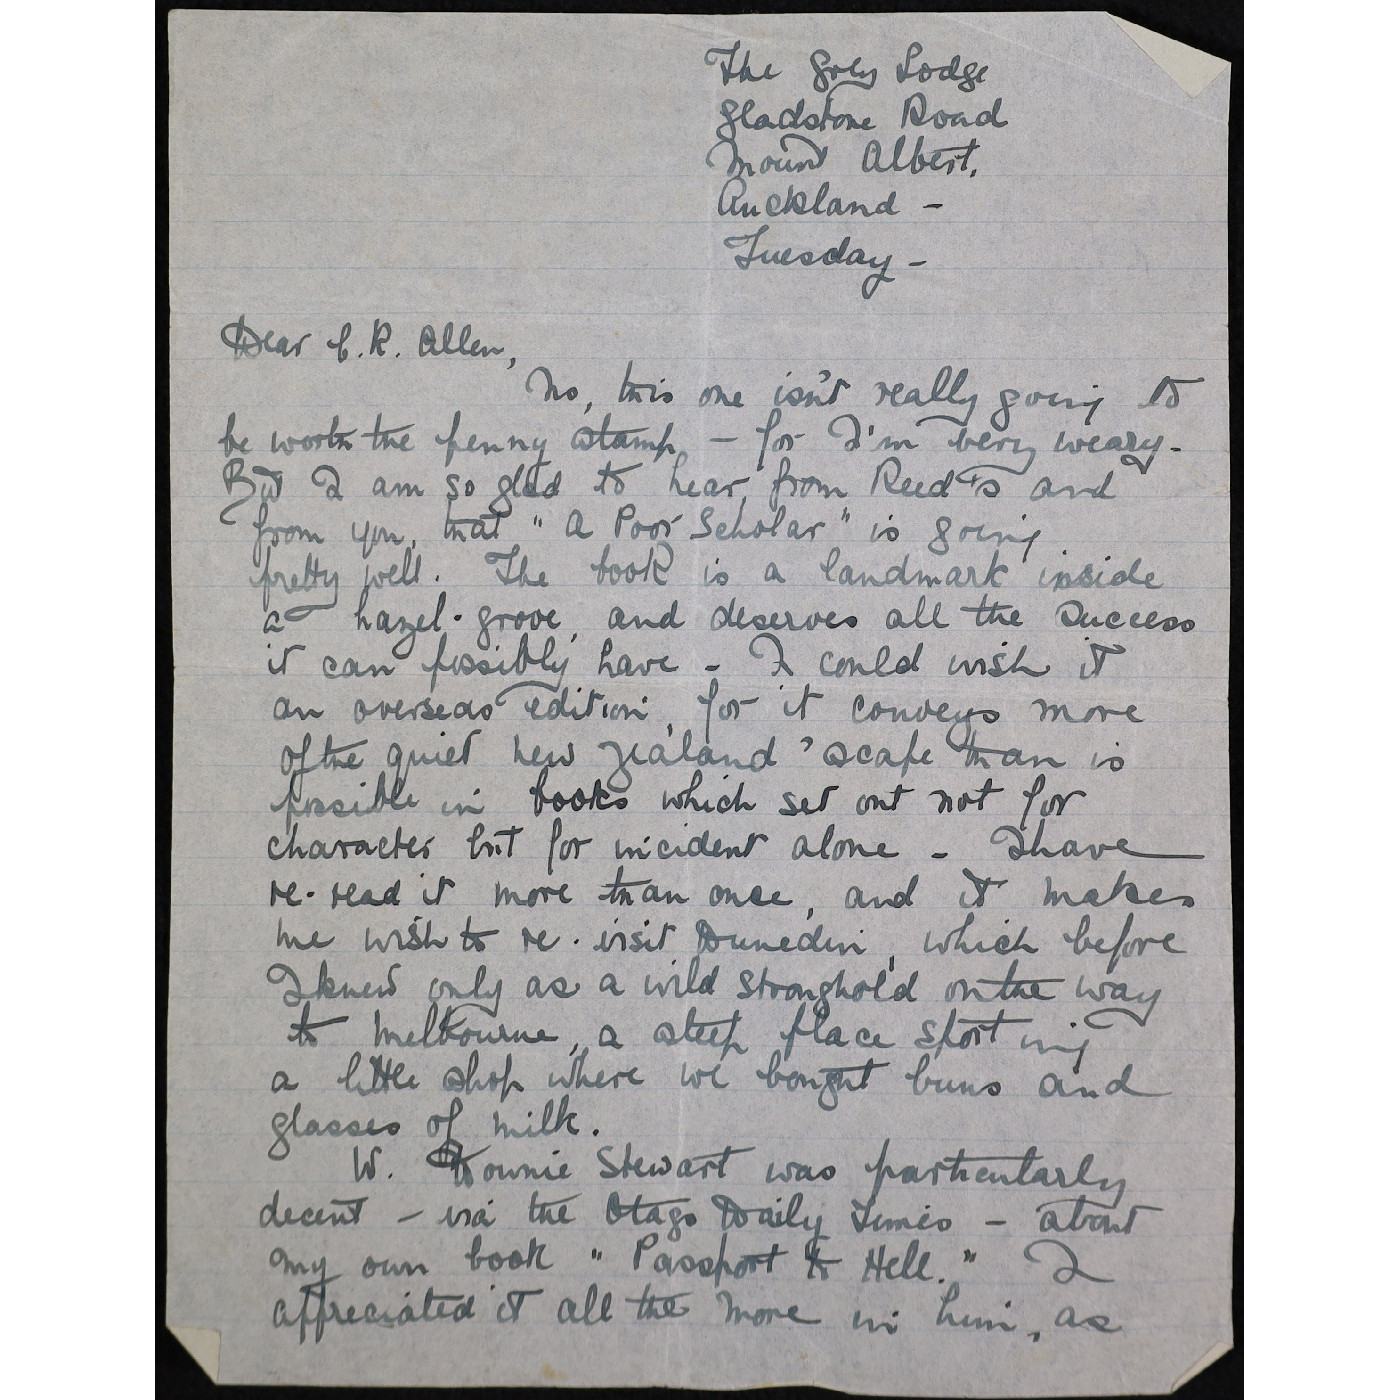 The Grey Lodge
Gladstone Road
Mount Albert,
Auckland –
Tuesday –
Dear C. R. Allen,
No, this one isn't really going to
be worth the penny stamp, – for I'm very weary.
But I am so glad to hear, from Reed's and
from you, that "A Poor Scholar" is going
pretty well. The book is a landmark inside
a hazel-grove, and deserves all the success
it can possibly have – I could wish it
an overseas edition, for it conveys more
of the quiet New Zealand 'scape than is
possible in books which set out not for
character but for incident alone – I have
re-read it more than once, and it makes
me wish to re-visit Dunedin, which before
I knew only as a wild stronghold on the way
to Melbourne, a steep place sporting
a little shop where we bought buns and
glasses of milk.
W. Downie Stewart was particularly
decent – via the Otago Daily Times – about
my own book "Passport to Hell." I
appreciated it all the more in him, as